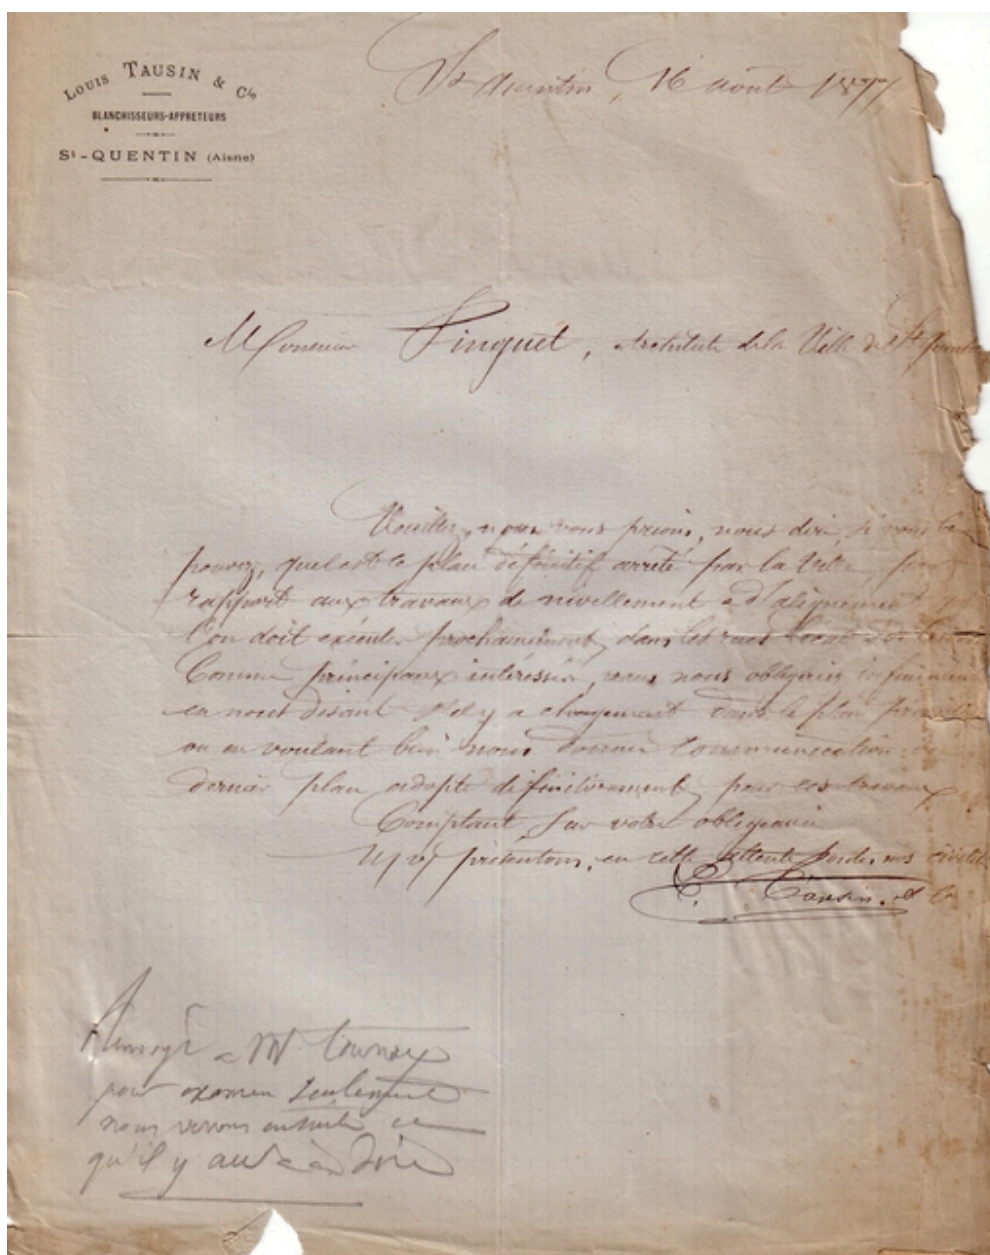 LOUIS TAUSIN & Cie
BLANCHISSEURS-APPRETEURS
St-QUENTIN (Aisne)
St Quentin, 16 août 1877
Monsieur Pinguet, Architecte de la Ville de St Quentin
Veuillez, nous vous prions, nous dire, si vous le
pouvez, quel est le plan définitif arrêté par la Ville,
rapport aux travaux de nivellement & d'alignement
l'on doit exécuter prochainement, dans les rues
Comme principaux intéressés, vous nous obligeriez infiniment
en nous disant s'il y a changement dans le plan
ou en voulant bien nous donner communication du
dernier plan adopté définitivement, pour ces travaux
Comptant sur votre obligeance
présentons, en cette attente, nos civilités
Tausin & Co
Renvoyé à Mr Tournay
pour examen seulement
nous verrons ensuite ce
qu'il y aura à dire